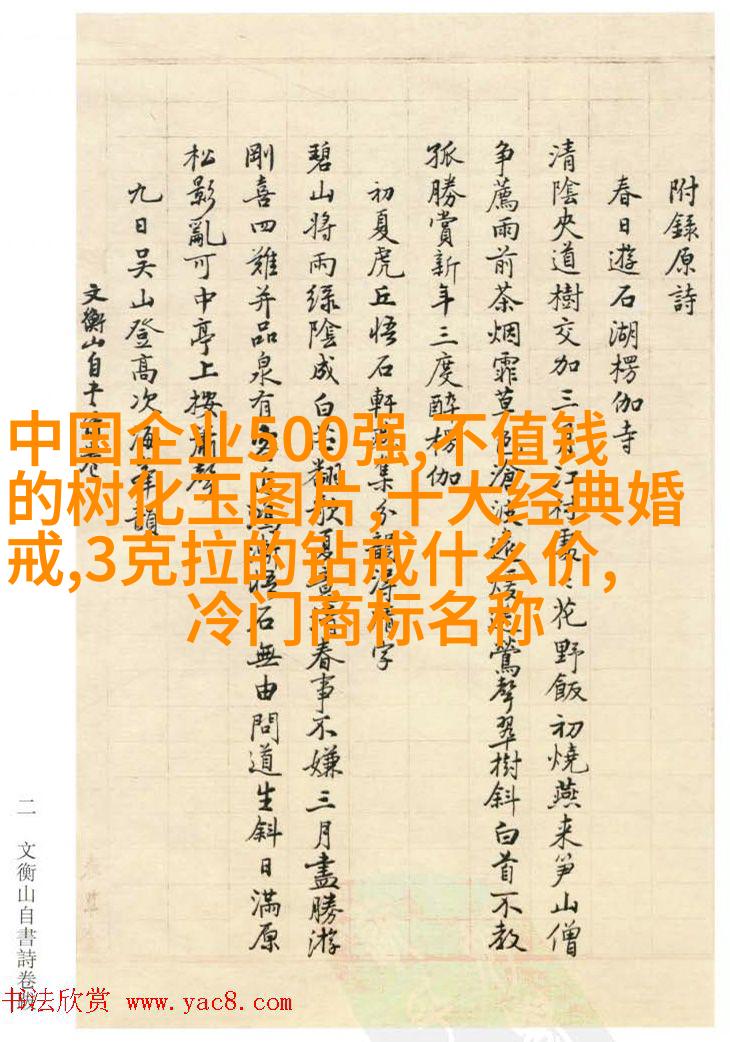 附錄原詩
春日遊石湖楞伽寺
清陰夾道樹交加三月江村
花野飯初燒燕来笋山僧
争薦雨前茶烟霏草色
鶯聲翠樹斜白首不教
孤勝賞新年三度醉楞伽
初夏虎丘悟石軒集分韻得
字
碧山將雨綠陰成白
春事不嫌三月盡勝游
剛喜四難并品泉有
悟石無由問道生斜日滿原
松影亂可中亭上按
九日吳山登高次
韻
文衡山自書
中国企业500强,不值钱
的树化玉图片,十大经典婚
戒,3克拉的钻戒什么价,
冷门商标名称
二 文衡山自書詩卷跋
书法欣赏 www.yac8.com